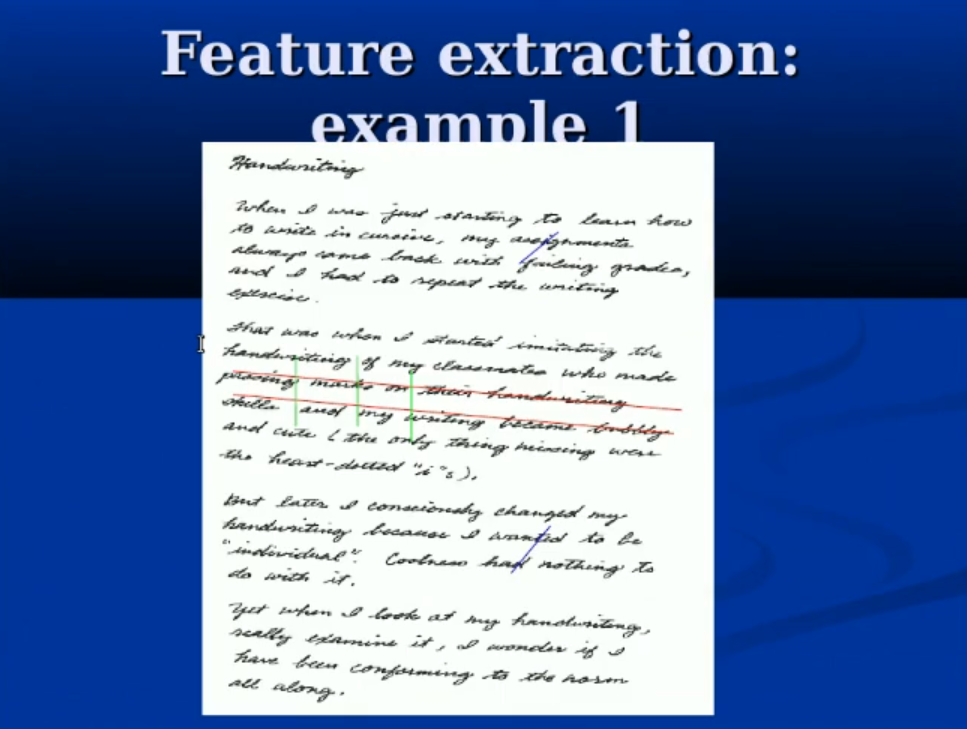 Feature extraction:
example 1
Handwriting
When I was just starting to learn how
to write in cursive, my assignments
always came back with failing grades,
and I had to repeat the writing
exercise.
That was when I started imitating the
handwriting of my classmates who made
passing marks on their handwriting
skills and my writing became bubbly
and cute (the only thing missing were
the heart-dotted "i"s).
But later I consciously changed my
handwriting because I wanted to be
"individual". Coolness had nothing to
do with it.
Yet when I look at my handwriting,
really examine it, I wonder if I
have been conforming to the norm
all along.